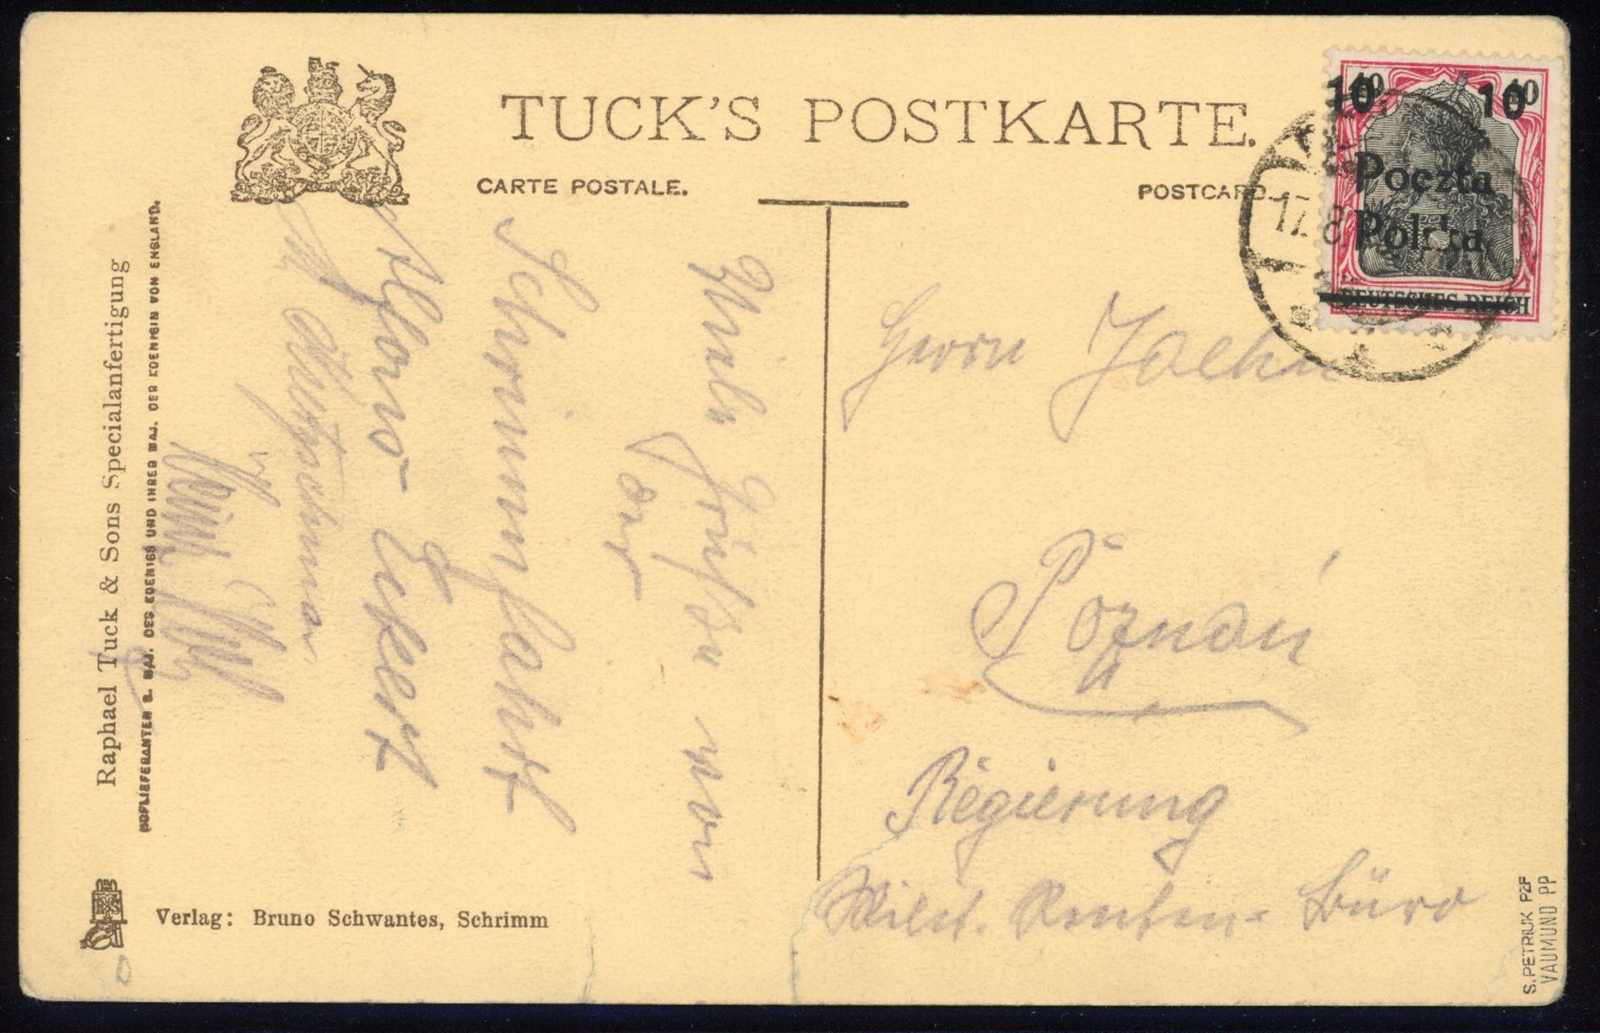 TUCK'S POSTKARTE.
CARTE POSTALE.
POSTCARD.
10 40 10 40
Poczta
Polska
DEUTSCHES REICH
17.8
Raphael Tuck & Sons Specialanfertigung
HOFLIEFERANTEN S. MAJ. DES KOENIGS UND IHRER MAJ. DER KOENIGIN VON ENGLAND.
Viele Grüße von
der
Schrimmfahrt
Alfons Eckert
Herrn Joehn
Poznań
Regierung
Milit. Renten-Büro
Verlag: Bruno Schwantes, Schrimm
S. PETRIUK PZF
VAUMUND PP